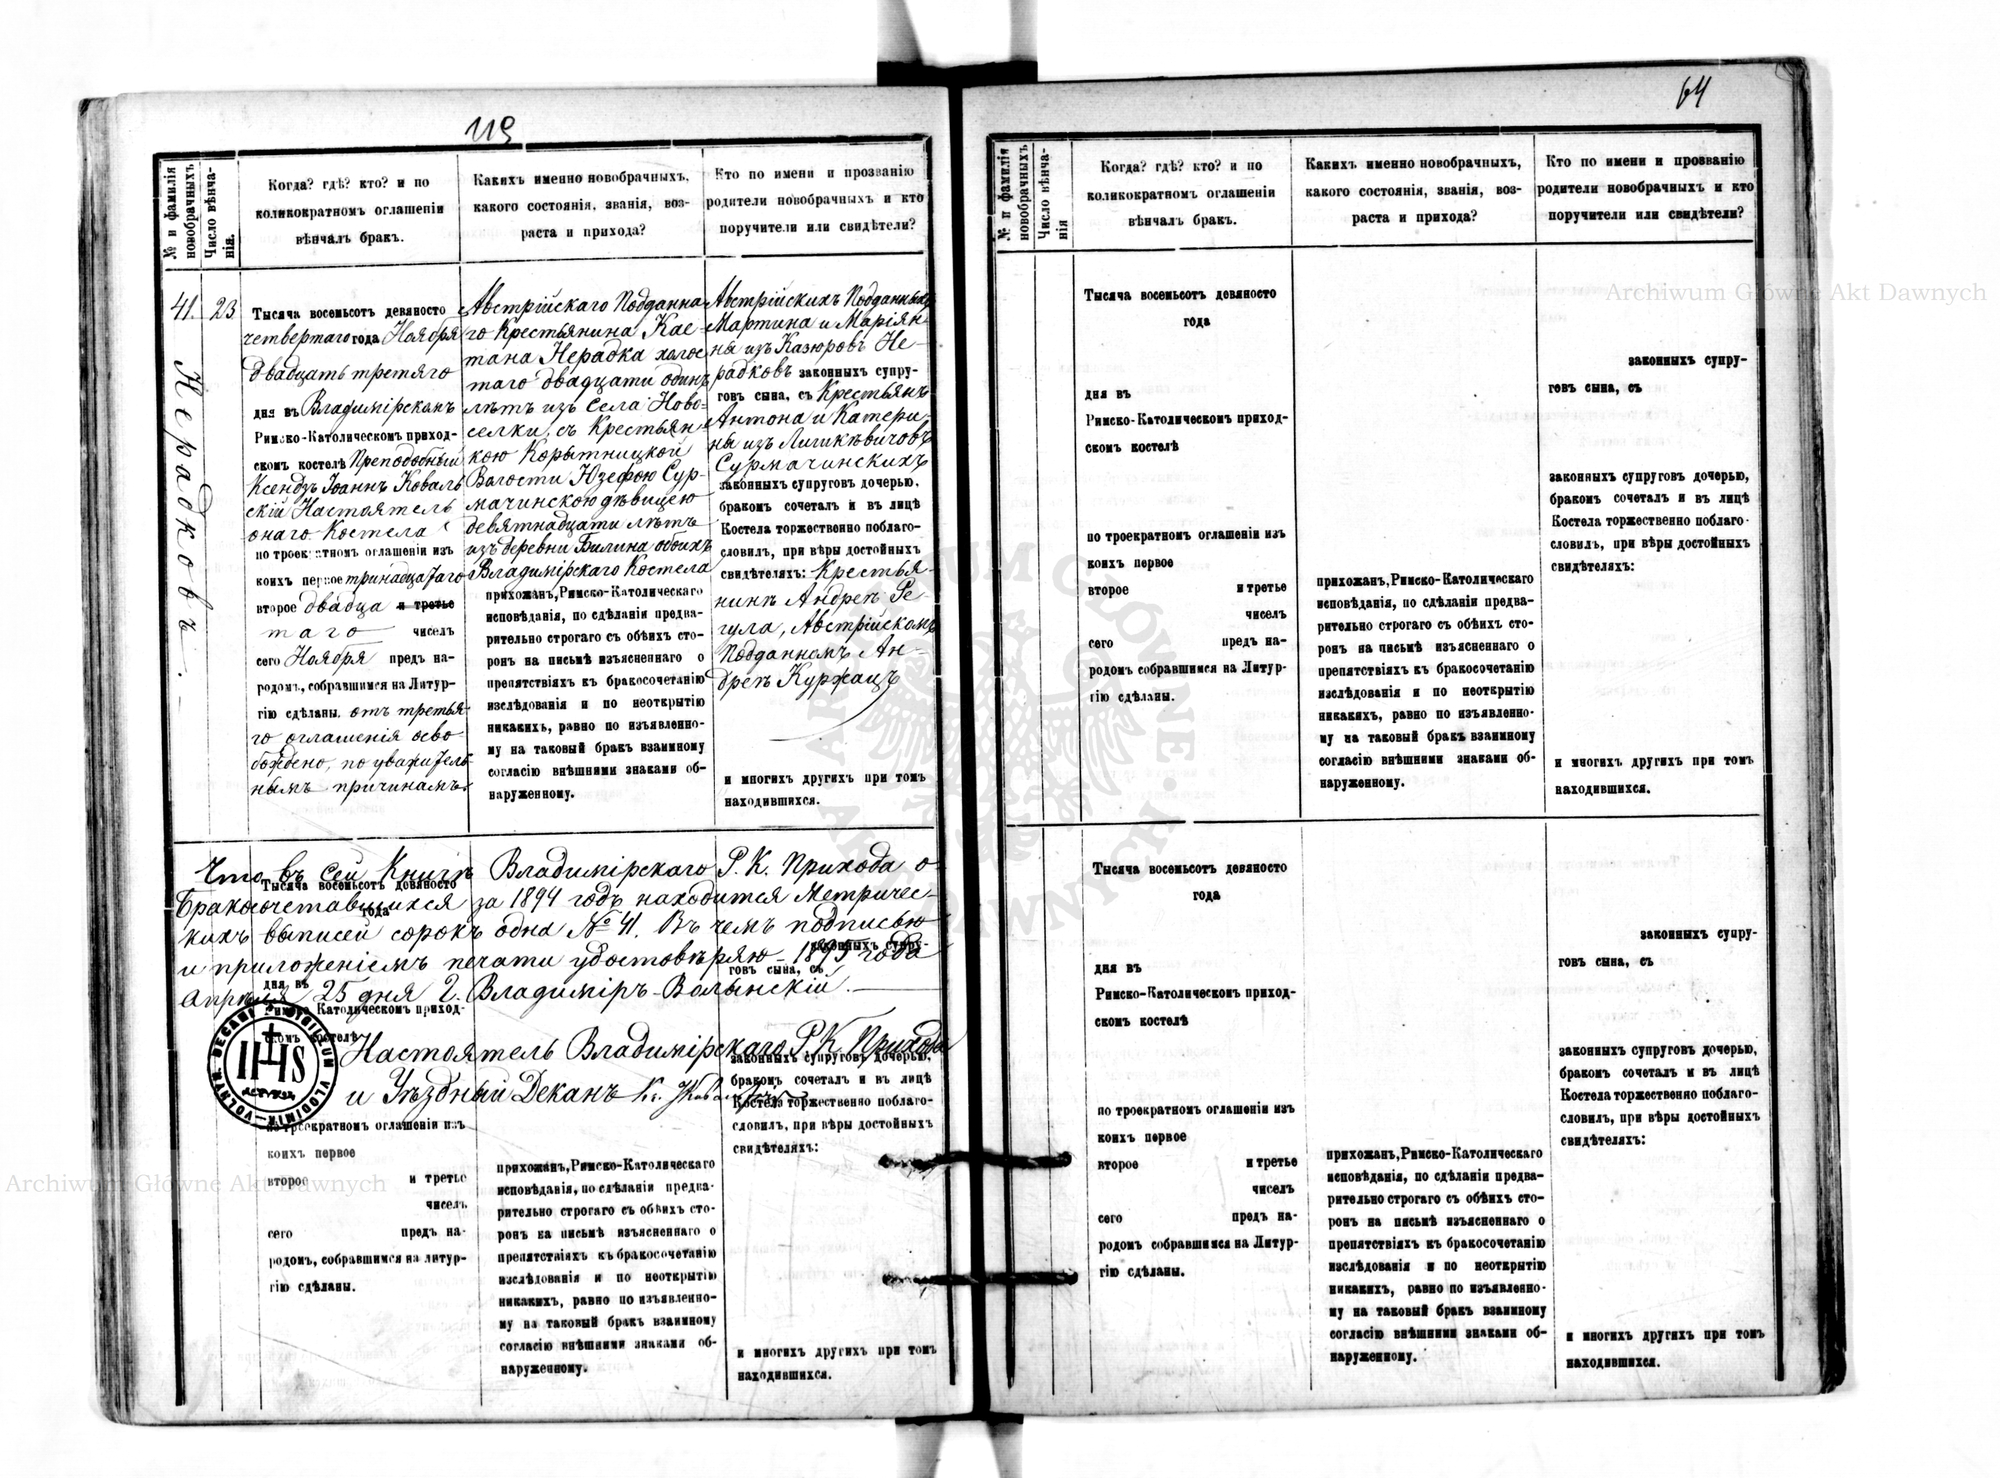 119
№ и фамилія новобрачныхъ
Число вѣнчанія.
Когда? гдѣ? кто? и по
коликократномъ оглашеніи
вѣнчалъ бракъ.
Какихъ именно новобрачныхъ,
какого состоянія, званія, воз-
раста и прихода?
Кто по имени и прозванію
родители новобрачныхъ и кто
поручители или свидѣтели?
41.
Нерадковъ. —
23
Тысяча восемьсотъ девяносто
четвертаго года Ноября
двадцать третяго
дня въ Владимірскомъ
Римско-Католическомъ приход-
скомъ костелѣ Преподобный
Ксендзъ Іоаннъ Коваль
скій Настоятель
онаго Костела
по троекратномъ оглашеніи изъ
коихъ первое тринадцатаго
второе двадца и третье
таго чиселъ
сего Ноября предъ на-
родомъ, собравшимся на Литур-
гію сдѣланы, отъ третья-
го оглашенія осво
бождено, по уважитель
нымъ причинамъ.
Австрійскаго Подданна
го Крестьянина Кае-
тана Нерадка холос
таго двадцати одинъ
лѣтъ изъ села Ново-
селки, съ Крестьян-
кою Корытницкой
Волости Юзефою Сур-
мачинскою дѣвицею
девятнадцати лѣтъ
изъ деревни Билина обоихъ
Владимірскаго Костела
прихожанъ, Римско-Католическаго
исповѣданія, по сдѣланіи предва-
рительно строгаго съ обѣихъ сто-
ронъ на письмѣ изъясненнаго о
препятствіяхъ къ бракосочетанію
изслѣдованія и по неоткрытію
никакихъ, равно по изъявленно-
му на таковый бракъ взаимному
согласію внѣшними знаками об-
наруженному.
Австрійскихъ Подданныхъ
Мартина и Маріян-
ны изъ Казюровъ Не-
радковъ законныхъ супру-
говъ сына, съ Крестьянъ
Антона и Катери-
ны изъ Лигикѣвичовъ
Сурмачинскихъ
законныхъ супруговъ дочерью,
бракомъ сочеталъ и въ лицѣ
Костела торжественно поблаго-
словилъ, при вѣры достойныхъ
свидѣтеляхъ: Крестья-
нинѣ Андреѣ Ре-
гула, Австрійскомъ
Подданномъ Ан-
дреѣ Куржацъ
и многихъ другихъ при томъ
находившихся.
Что въ сей Книгѣ Владимірскаго Р. К. Прихода о
Бракосочетавшихся за 1894 годъ находится Метричес-
кихъ выписей сорокъ одна № 41. Въ чемъ подписью
и приложеніемъ печати удостовѣряю – 1895 года
Апрѣля 25 дня г. Владиміръ-Волынскій. —
Настоятель Владимірскаго Р. К. Прихода
и Уѣздный Деканъ Кс. Ковальскій
IHS
Тысяча восемьсотъ девяносто
года
дня въ
Римско-Католическомъ приход-
скомъ костелѣ
по троекратномъ оглашеніи изъ
коихъ первое
второе и третье
чиселъ
сего предъ на-
родомъ, собравшимся на литур-
гію сдѣланы.
прихожанъ, Римско-Католическаго
исповѣданія, по сдѣланіи предва-
рительно строгаго съ обѣихъ сто-
ронъ на письмѣ изъясненнаго о
препятствіяхъ къ бракосочетанію
изслѣдованія и по неоткрытію
никакихъ, равно по изъявленно-
му на таковый бракъ взаимному
согласію внѣшними знаками об-
наруженному.
законныхъ супру-
говъ сына, съ
законныхъ супруговъ дочерью,
бракомъ сочеталъ и въ лицѣ
Костела торжественно поблаго-
словилъ, при вѣры достойныхъ
свидѣтеляхъ:
и многихъ другихъ при томъ
находившихся.
64
№ и фамилія новобрачныхъ
Число вѣнчанія
Когда? гдѣ? кто? и по
коликократномъ оглашеніи
вѣнчалъ бракъ.
Какихъ именно новобрачныхъ,
какого состоянія, званія, воз-
раста и прихода?
Кто по имени и прозванію
родители новобрачныхъ и кто
поручители или свидѣтели?
Тысяча восемьсотъ девяносто
года
дня въ
Римско-Католическомъ приход-
скомъ костелѣ
по троекратномъ оглашеніи изъ
коихъ первое
второе и третье
чиселъ
сего предъ на-
родомъ собравшимся на Литур-
гію сдѣланы.
прихожанъ, Римско-Католическаго
исповѣданія, по сдѣланіи предва-
рительно строгаго съ обѣихъ сто-
ронъ на письмѣ изъясненнаго о
препятствіяхъ къ бракосочетанію
изслѣдованія и по неоткрытію
никакихъ, равно по изъявленно-
му на таковый бракъ взаимному
согласію внѣшними знаками об-
наруженному.
законныхъ супру-
говъ сына, съ
законныхъ супруговъ дочерью,
бракомъ сочеталъ и въ лицѣ
Костела торжественно поблаго-
словилъ, при вѣры достойныхъ
свидѣтеляхъ:
и многихъ другихъ при томъ
находившихся.
Тысяча восемьсотъ девяносто
года
дня въ
Римско-Католическомъ приход-
скомъ костелѣ
по троекратномъ оглашеніи изъ
коихъ первое
второе и третье
чиселъ
сего предъ на-
родомъ собравшимся на Литур-
гію сдѣланы.
прихожанъ, Римско-Католическаго
исповѣданія, по сдѣланіи предва-
рительно строгаго съ обѣихъ сто-
ронъ на письмѣ изъясненнаго о
препятствіяхъ къ бракосочетанію
изслѣдованія и по неоткрытію
никакихъ, равно по изъявленно-
му на таковый бракъ взаимному
согласію внѣшними знаками об-
наруженному.
законныхъ супру-
говъ сына, съ
законныхъ супруговъ дочерью,
бракомъ сочеталъ и въ лицѣ
Костела торжественно поблаго-
словилъ, при вѣры достойныхъ
свидѣтеляхъ:
и многихъ другихъ при томъ
находившихся.
Archiwum Główne Akt Dawnych
Archiwum Główne Akt Dawnych
ARCHIWUM GŁÓWNE AKT DAWNYCH